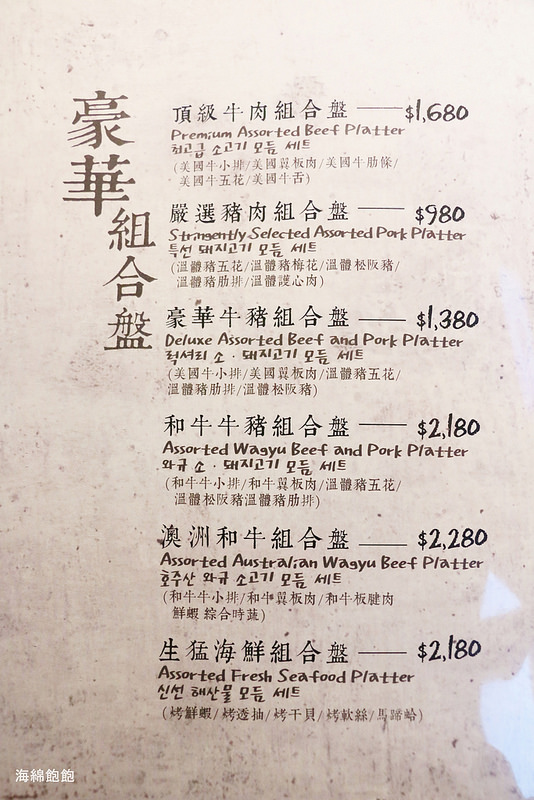 豪華組合盤
頂級牛肉組合盤 —— $1,680
Premium Assorted Beef Platter
최고급 소고기 모듬 세트
(美國牛小排/美國翼板肉/美國牛肋條/
美國牛五花/美國牛舌)
嚴選豬肉組合盤 —— $980
Stringently Selected Assorted Pork Platter
특선 돼지고기 모듬 세트
(溫體豬五花/溫體豬梅花/溫體松阪豬/
溫體豬肋排/溫體護心肉)
豪華牛豬組合盤 —— $1,380
Deluxe Assorted Beef and Pork Platter
럭셔리 소·돼지고기 모듬 세트
(美國牛小排/美國翼板肉/溫體豬五花/
溫體豬肋排/溫體松阪豬)
和牛牛豬組合盤 —— $2,180
Assorted Wagyu Beef and Pork Platter
와규 소·돼지고기 모듬 세트
(和牛牛小排/和牛翼板肉/溫體豬五花/
溫體松阪豬溫體豬肋排)
澳洲和牛組合盤 —— $2,280
Assorted Australian Wagyu Beef Platter
호주산 와규 소고기 모듬 세트
(和牛牛小排/和牛翼板肉/和牛板腱肉
鮮蝦 綜合時蔬)
生猛海鮮組合盤 —— $2,180
Assorted Fresh Seafood Platter
신선 해산물 모듬 세트
(烤鮮蝦/烤透抽/烤干貝/烤軟絲/馬蹄蛤)
海綿飽飽